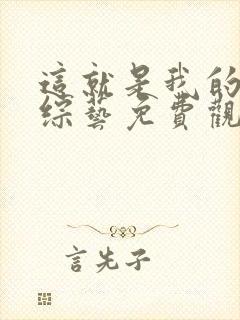 這就是我的
綜藝免費觀
言先子